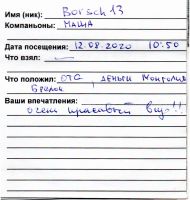 Имя (ник): Borsch 13
Компаньоны: МАША
Дата посещения: 12.08.2020 10:50
Что взял: —
Что положил: ОТС, деньги Монголия
брелок
Ваши впечатления:
очень красивый вид!!